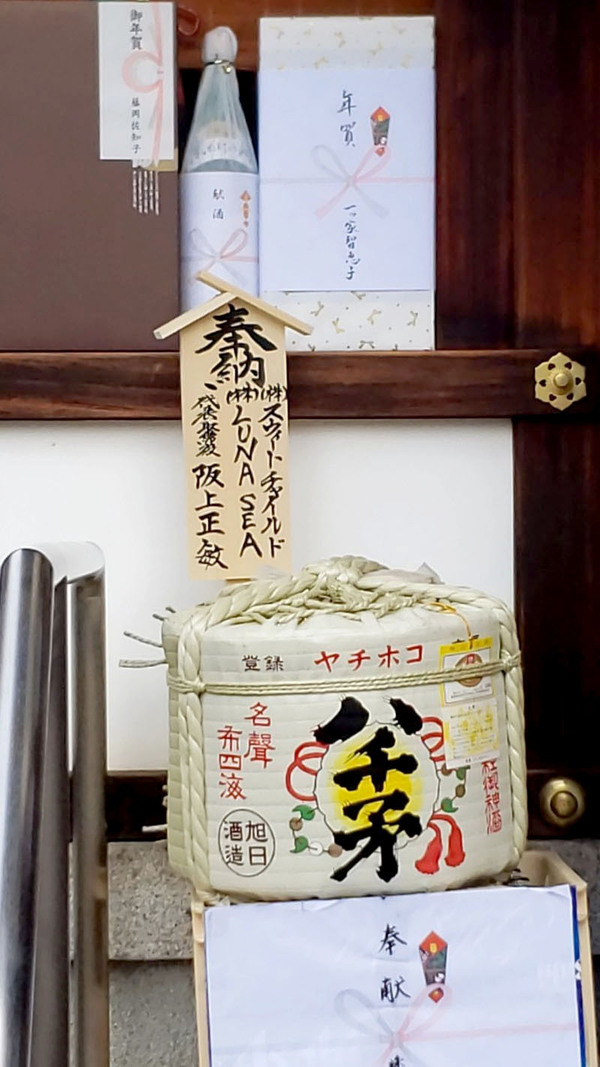 御年賀
藤岡佐知子
献酒
年賀
一家智恵子
奉納
(株)スウィートチャイルド
(株)LUNA SEA
代表取締役 阪上正敏
登録
ヤチホコ
名聲
布四海
八千矛
旭日
酒造
御神酒
奉献